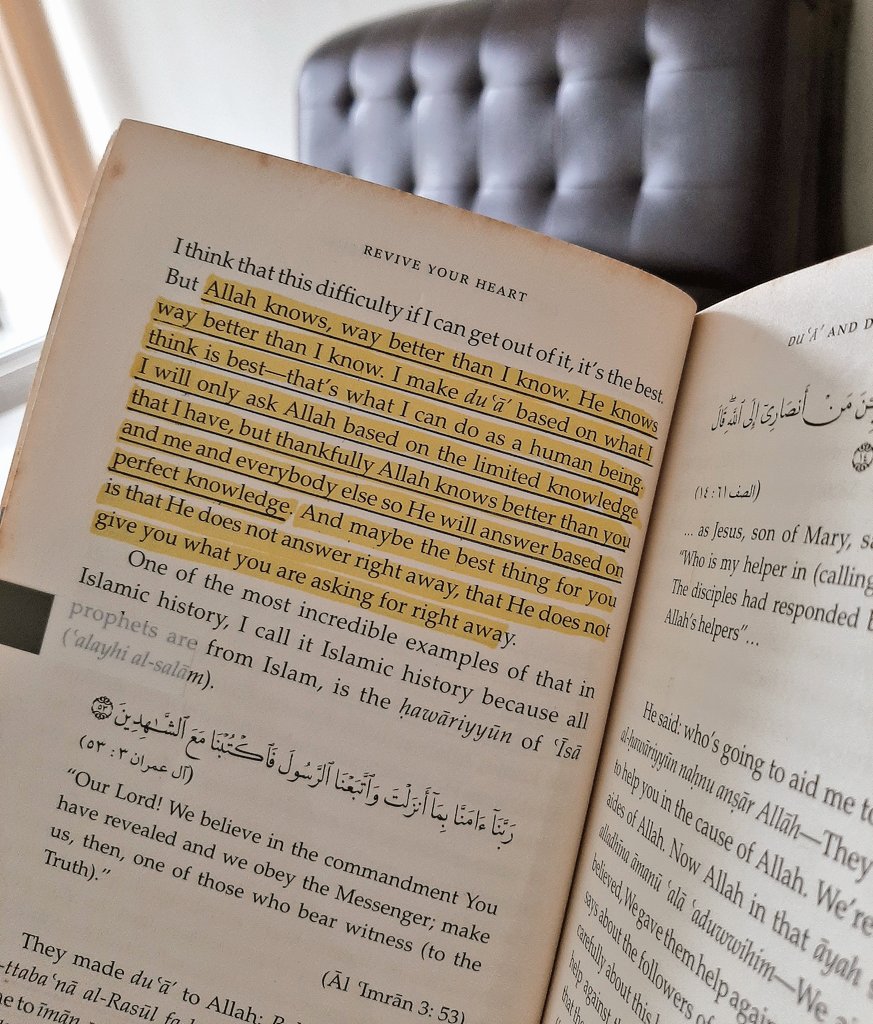 REVIVE YOUR HEART
I think that this difficulty if I can get out of it, it's the best.
But Allah knows, way better than I know. He knows
way better than I know. I make du‘ā’ based on what I
think is best—that's what I can do as a human being.
I will only ask Allah based on the limited knowledge
that I have, but thankfully Allah knows better than you
and me and everybody else so He will answer based on
perfect knowledge. And maybe the best thing for you
is that He does not answer right away, that He does not
give you what you are asking for right away.
One of the most incredible examples of that in
Islamic history, I call it Islamic history because all
prophets are from Islam, is the ḥawāriyyūn of ‘Īsā
(‘alayhi al-salām).
رَبَّنَآ ءَامَنَّا بِمَآ أَنزَلْتَ وَٱتَّبَعْنَا ٱلرَّسُولَ فَٱكْتُبْنَا مَعَ ٱلشَّـٰهِدِينَ ۝٥٣
(آل عمران ٣ : ٥٣)
“Our Lord! We believe in the commandment You
have revealed and we obey the Messenger; make
us, then, one of those who bear witness (to the
Truth).”
(Āl ‘Imrān 3: 53)
They made du‘ā’ to Allah;
ttaba‘nā al-Rasūl
to īmān
DU‘Ā’ AND
مَنْ أَنصَارِىٓ إِلَى ٱللَّهِ قَالَ
١٤
(الصف ٦١ : ١٤)
... as Jesus, son of Mary,
“Who is my helper in (calling
The disciples had responded
Allah's helpers”...
He said: who's going to aid me
al-ḥawāriyyūn naḥnu anṣār Allāh—They
to help you in the cause of Allah. We're
aides of Allah. Now Allah in that āyah
alladhīna āmanū ‘alā ‘aduwwihim—We
believed, We gave them help
says about the followers of
carefully about this
help against
that the